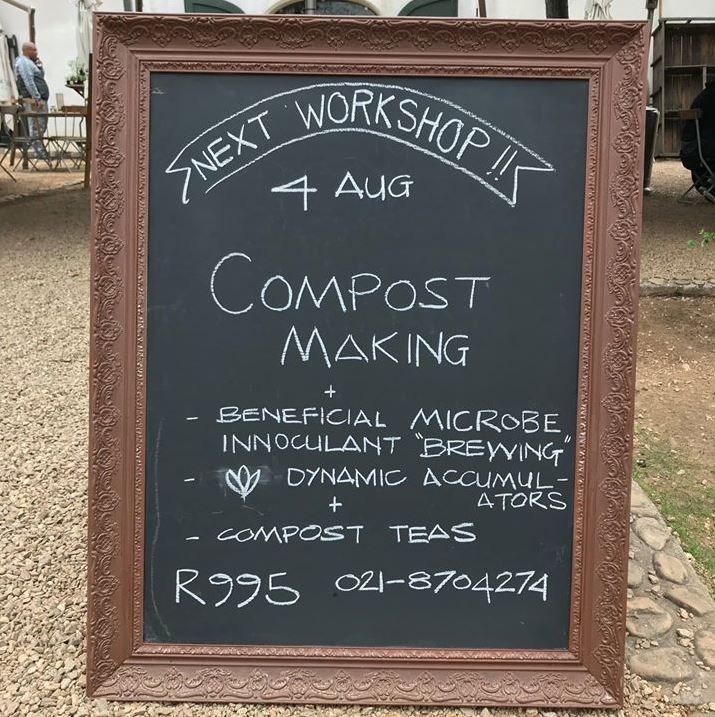 NEXT WORKSHOP!!
4 AUG
COMPOST
MAKING
+
- BENEFICIAL MICROBE
INNOCULANT "BREWING"
- DYNAMIC ACCUMUL-
ATORS
+
- COMPOST TEAS
R995 021-8704274